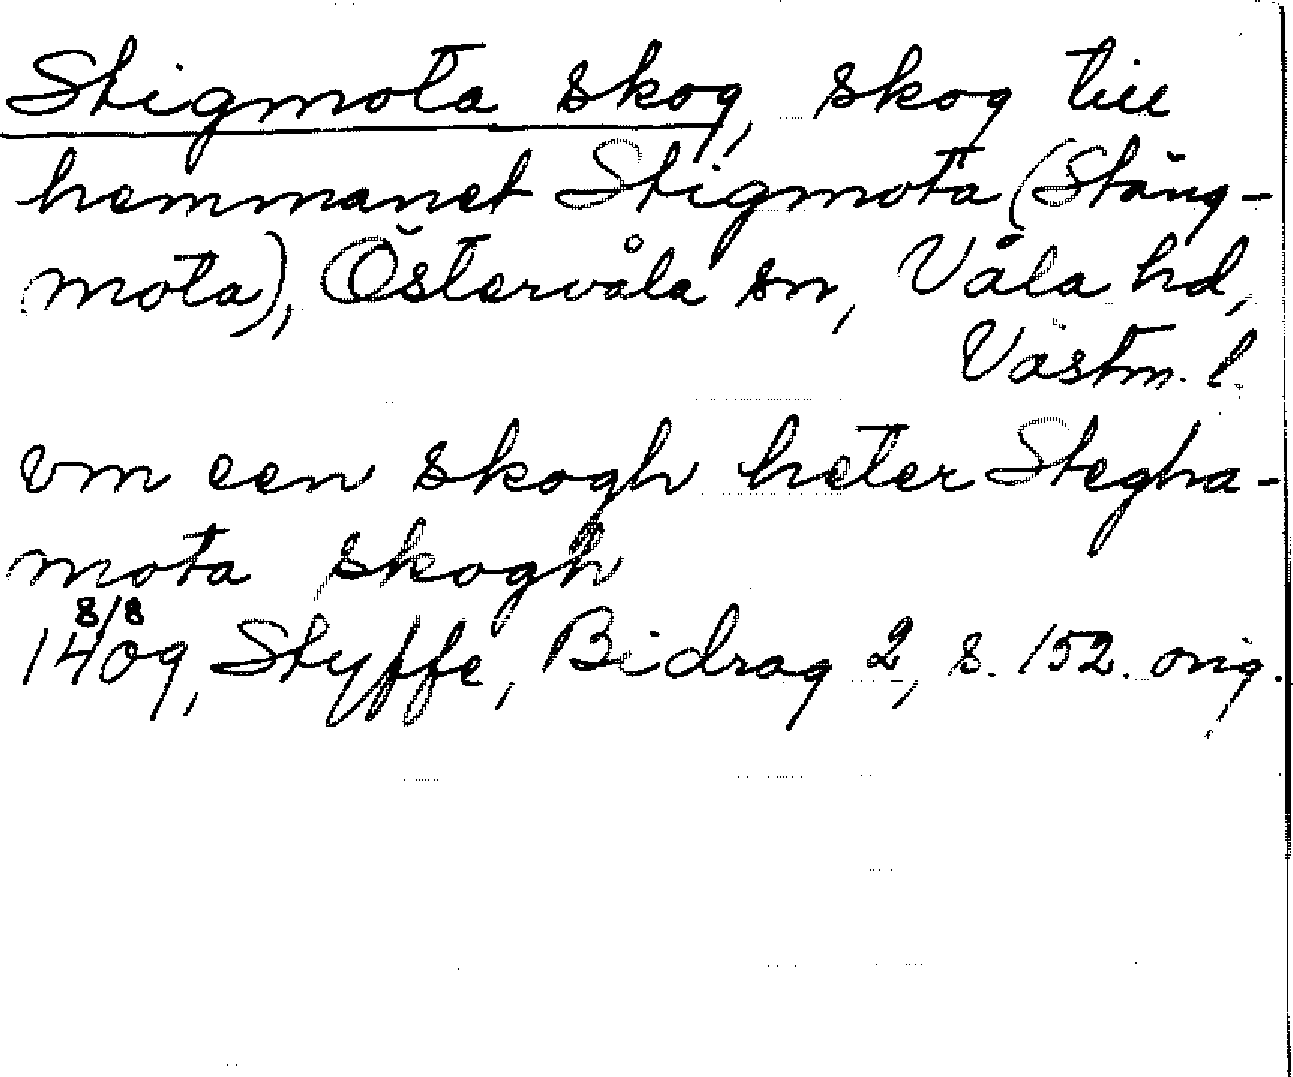 Stigmota skog, skog till
hemmanet Stigmota (Stäng-
mota), Östervåla sn, Våla hd,
Västm. l.
vm een skogh heter Stegha-
mota skogh
8/8
1409, Styffe, Bidrag 2, s. 152. orig.